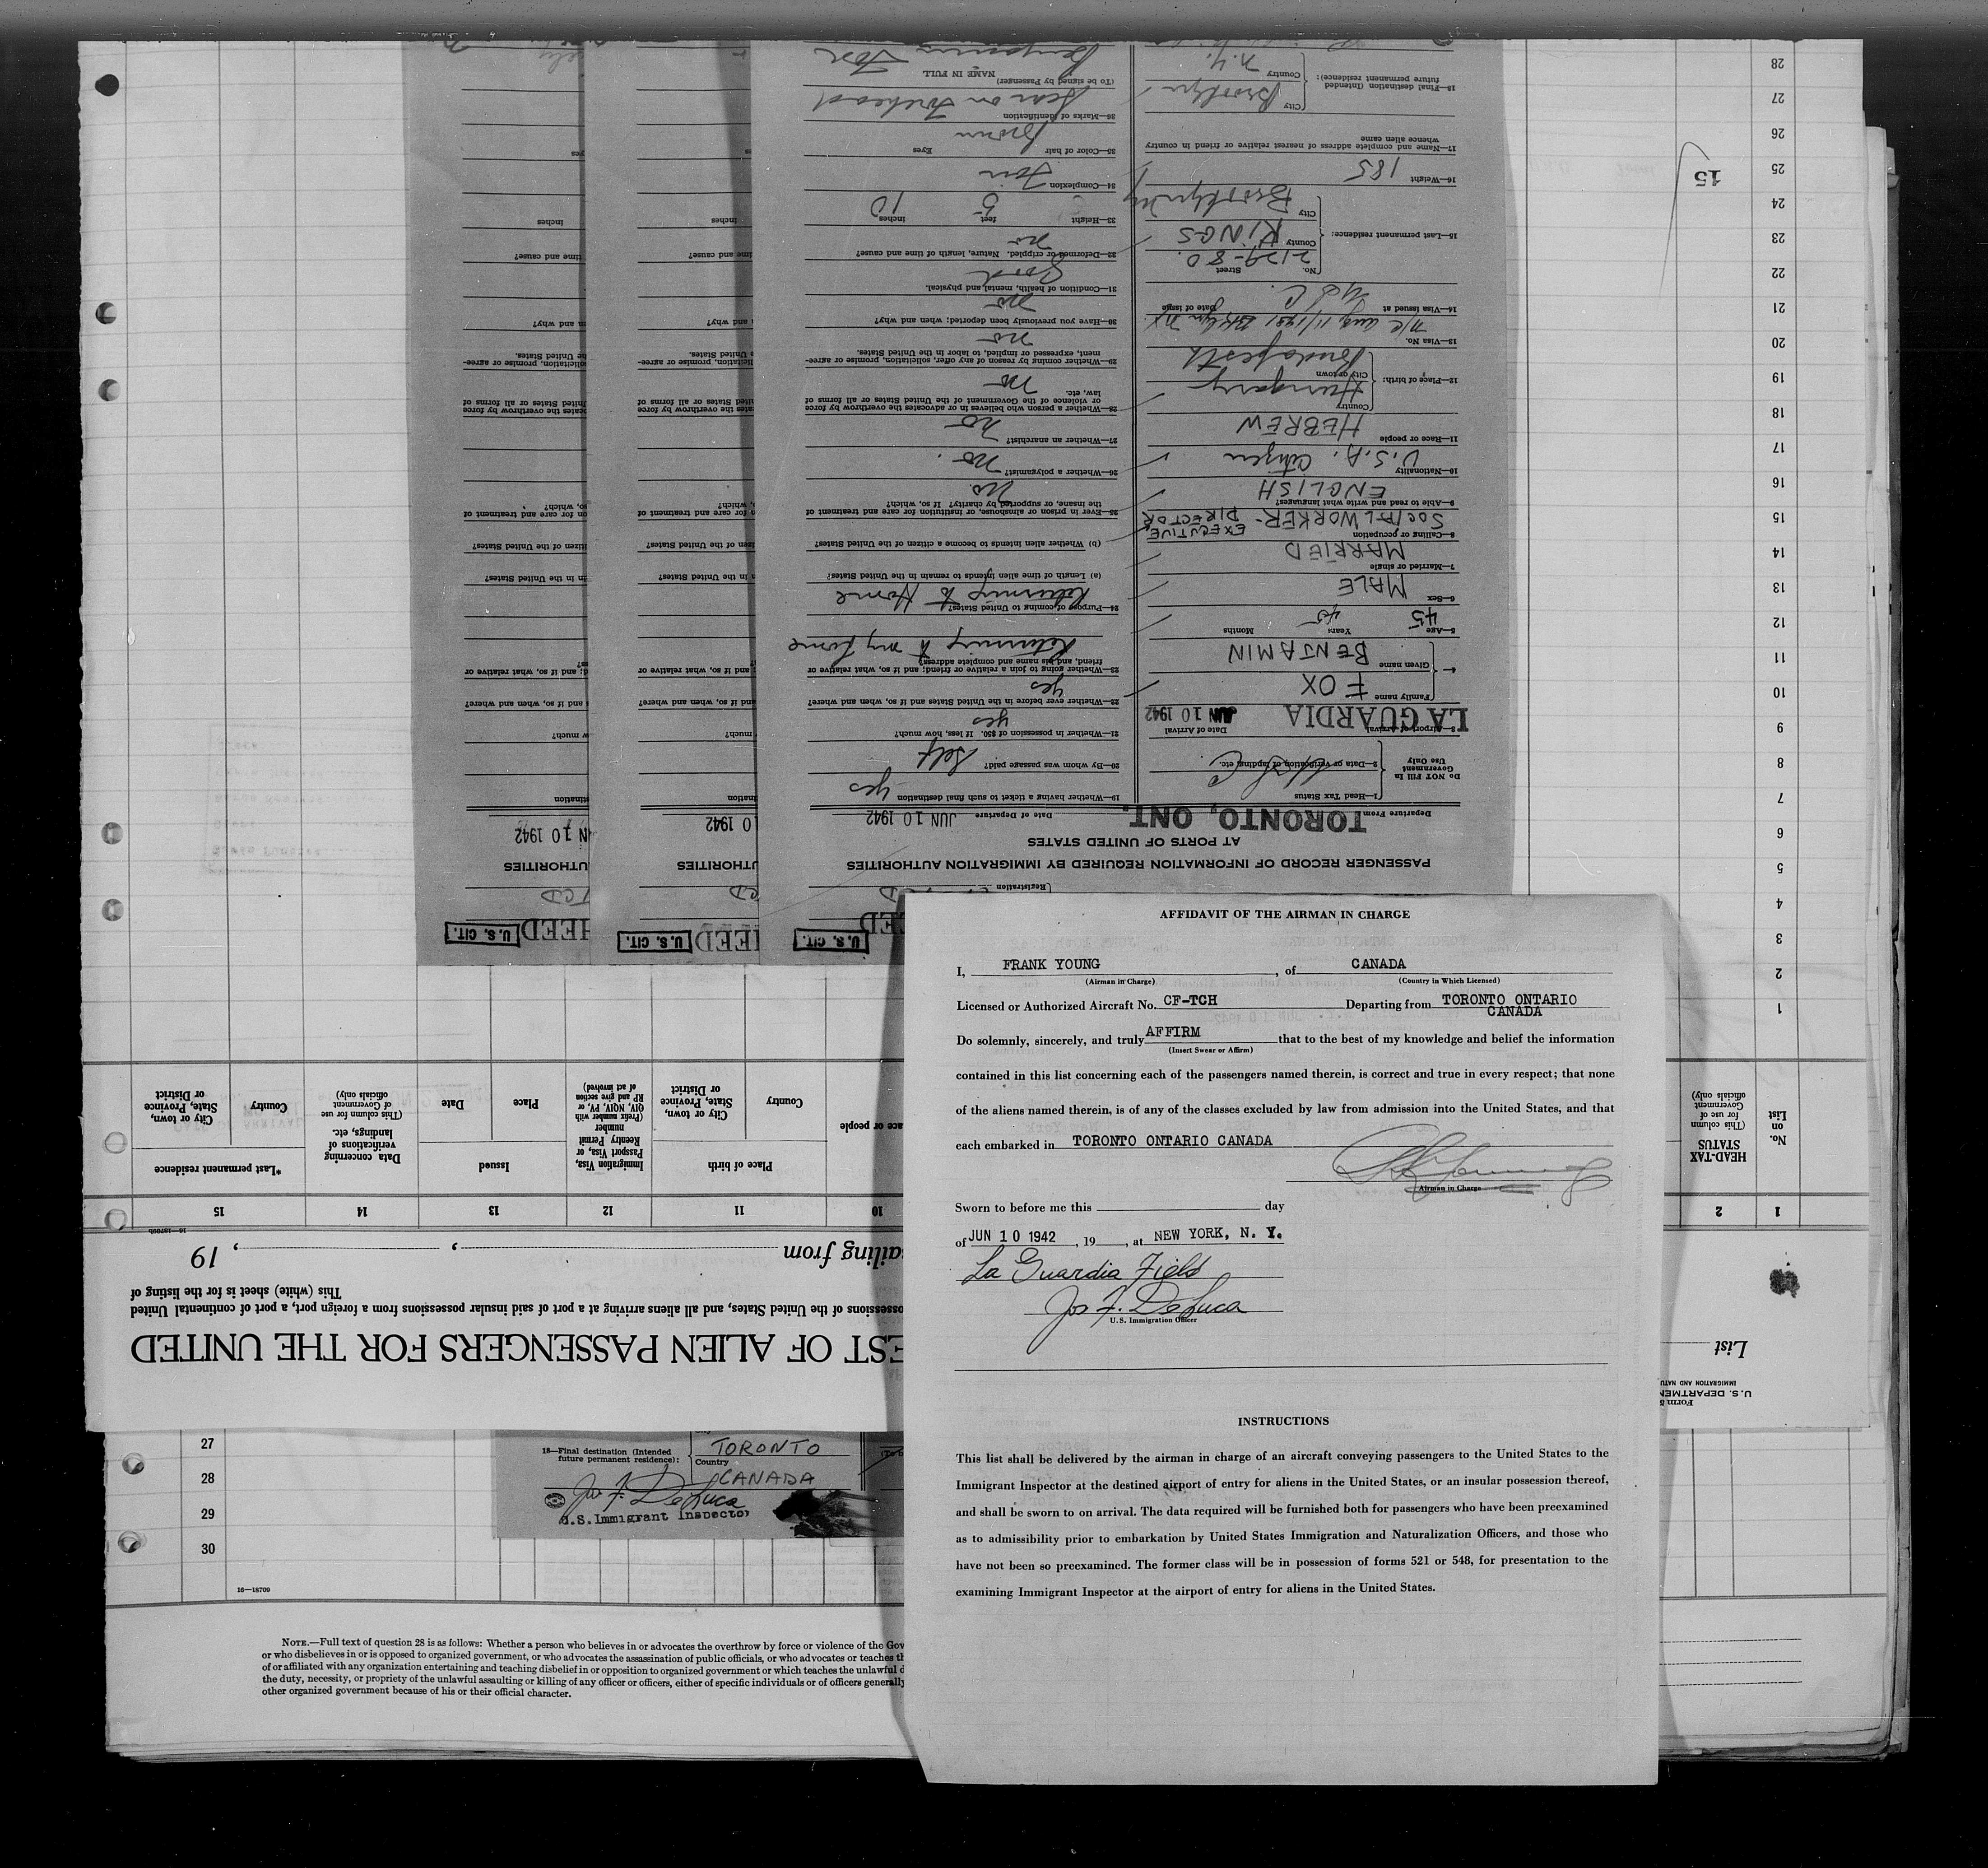 AFFIDAVIT OF THE AIRMAN IN CHARGE
I, FRANK YOUNG, of CANADA
(Airman in Charge) (Country in Which Licensed)
Licensed or Authorized Aircraft No. CF-TCH Departing from TORONTO ONTARIO
CANADA
Do solemnly, sincerely, and truly AFFIRM that to the best of my knowledge and belief the information
(Insert Swear or Affirm)
contained in this list concerning each of the passengers named therein, is correct and true in every respect; that none
of the aliens named therein, is of any of the classes excluded by law from admission into the United States, and that
each embarked in TORONTO ONTARIO CANADA
Airman in Charge
Sworn to before me this day
of JUN 10 1942, 19, at NEW YORK, N. Y.
La Guardia Field
Jos F. DeLuca
U.S. Immigration Officer
INSTRUCTIONS
This list shall be delivered by the airman in charge of an aircraft conveying passengers to the United States to the
Immigrant Inspector at the destined airport of entry for aliens in the United States, or an insular possession thereof,
and shall be sworn to on arrival. The data required will be furnished both for passengers who have been preexamined
as to admissibility prior to embarkation by United States Immigration and Naturalization Officers, and those who
have not been so preexamined. The former class will be in possession of forms 521 or 548, for presentation to the
examining Immigrant Inspector at the airport of entry for aliens in the United States.
27
28
29
30
16—18709
18—Final destination (Intended
future permanent residence):
TORONTO
Country
CANADA
Jos F. DeLuca
U.S. Immigrant Inspector
NOTE.—Full text of question 28 is as follows: Whether a person who believes in or advocates the overthrow by force or violence of the Gov
or who disbelieves in or is opposed to organized government, or who advocates the assassination of public officials, or who advocates or teaches th
of or affiliated with any organization entertaining and teaching disbelief in or opposition to organized government or which teaches the unlawful d
the duty, necessity, or propriety of the unlawful assaulting or killing of any officer or officers, either of specific individuals or of officers generally
other organized government because of his or their official character.
U.S. DEPARTMEN
IMMIGRATION AND NATU
List
EST OF ALIEN PASSENGERS FOR THE UNITED
ossessions of the United States, and all aliens arriving at a port of said insular possessions from a foreign port, a port of continental United
This (white) sheet is for the listing of
ailing from , , 19
1 2 10 11 12 13 14 15
No. on List
HEAD-TAX STATUS
(This column for use of Government officials only)
ace or people
Place of birth
Country
City or town, State, Province or District
Immigration Visa, Passport Visa, or Reentry Permit number
(Prefix number with QIV, NQIV, PV, or RP and give section of act involved)
Issued
Place
Date
Data concerning verifications of landings, etc.
(This column for use of Government officials only)
*Last permanent residence
Country
City or town, State, Province or District
1
2
3
4
5
6
7
8
9
10
11
12
13
14
15
16
17
18
19
20
21
22
23
24
25
26
27
28
15
U.S. CIT.
U.S. CIT.
U.S. CIT.
Registration
PASSENGER RECORD OF INFORMATION REQUIRED BY IMMIGRATION AUTHORITIES
AT PORTS OF UNITED STATES
Departure From TORONTO, ONT. Date of Departure JUN 10 1942
Do NOT Fill In
Government
Use Only
1—Head Tax Status
2—Data or verification of landing, etc.
3—Airport of Arrival LA GUARDIA Date of Arrival JUN 10 1942
4—
Family name FOX
Given name BENJAMIN
5—Age 45 Years 45 Months
6—Sex MALE
7—Married or single MARRIED
8—Calling or occupation SOCIAL WORKER - EXECUTIVE DIRECTOR
9—Able to read and write what languages? ENGLISH
10—Nationality U.S.A. Citizen
11—Race or people HEBREW
12—Place of birth:
Country Hungary
City or town Budapesth
13—Visa No.
14—Visa issued at Date of issue
15—Last permanent residence:
No. Street 2129-80
County KINGS
City Brooklyn NY
16—Weight 185
17—Name and complete address of nearest relative or friend in country
whence alien came
18—Final destination (Intended
future permanent residence):
City Brooklyn
Country N.Y.
19—Whether having a ticket to such final destination yes
20—By whom was passage paid? Self
21—Whether in possession of $50. If less, how much? yes
22—Whether ever before in the United States and if so, when and where?
yes
23—Whether going to join a relative or friend; and if so, what relative or
friend, and his name and complete address?
Returning to my home
24—Purpose of coming to United States? Returning to Home
(a) Length of time alien intends to remain in the United States?
(b) Whether alien intends to become a citizen of the United States?
25—Ever in prison or almshouse, or institution for care and treatment of
the insane, or supported by charity? If so, which? no.
26—Whether a polygamist? no.
27—Whether an anarchist? no
28—Whether a person who believes in or advocates the overthrow by force
or violence of the Government of the United States or all forms of
law, etc. no
29—Whether coming by reason of any offer, solicitation, promise or agree-
ment, expressed or implied, to labor in the United States.
no
30—Have you previously been deported; when and why?
no
31—Condition of health, mental and physical.
Good
32—Deformed or crippled. Nature, length of time and cause?
no
33—Height 5 feet 10 inches
34—Complexion Fair
35—Color of hair Brown Eyes
36—Marks of identification Scar on forehead
(To be signed by Passenger)
NAME IN FULL
Benjamin Fox